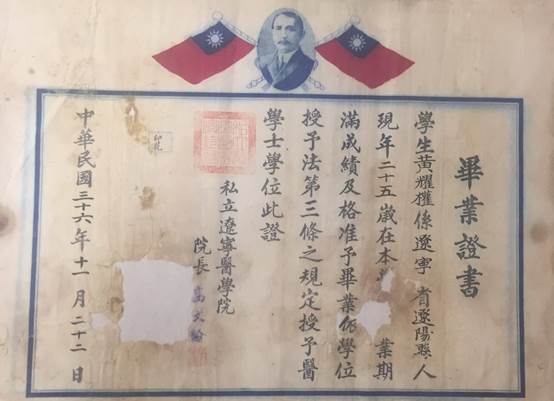 畢業證書
學生黃耀權係遼寧省遼陽縣人
現年二十五歲在本業期
滿成績及格准予畢業依學位
授予法第三條之規定授予醫
學士學位此證
私立遼寧醫學院
院長高文翰
中華民國三十六年十一月二十二日
印花